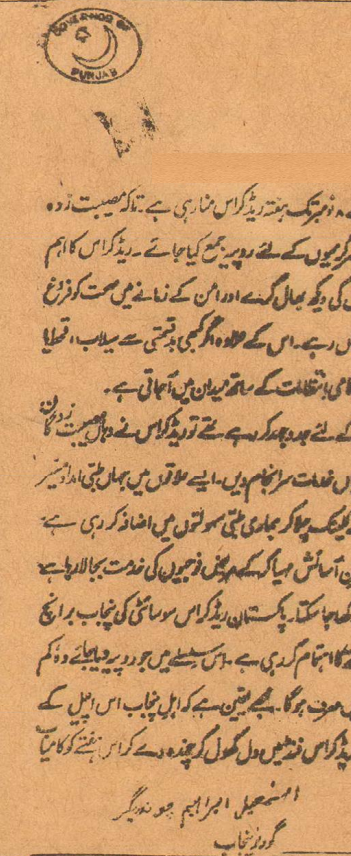 GOVERNOR OF
PUNJAB
۸ نومبر تک ہفتہ ریڈ کراس منا رہی ہے۔ تاکہ مصیبت زدہ
کے لئے روپیہ جمع کیا جائے۔ ریڈ کراس کا اہم
کی دیکھ بھال کرے اور امن کے زمانے میں صحت کو فروغ
رہے۔ اس کے علاوہ اگر کبھی بدقسمتی سے سیلاب، قحط یا
انتظامات کے ساتھ میدان میں آجاتی ہے۔
کے لئے جدوجہد کر رہے تھے تو ریڈ کراس نے وہاں مصیبت زدگان
خدمات سرانجام دیں۔ ایسے علاقوں میں جہاں طبی امداد میسر
کلینک چلا کر ہماری طبی سہولتوں میں اضافہ کر رہی ہے۔
آسائش مہیا کر کے مریض فوجیوں کی خدمت بجا لا رہا ہے
جا سکتا۔ پاکستان ریڈ کراس سوسائٹی کی پنجاب برانچ
کا اہتمام کر رہی ہے۔ اس سلسلے میں جو روپیہ دیا جائے وہ کم
صرف ہوگا۔ مجھے یقین ہے کہ اہل پنجاب اس اپیل کے
ریڈ کراس فنڈ میں دل کھول کر چندہ دے کر اس ہفتے کو کامیاب
اسمٰعیل ابراہیم چوندریگر
گورنر پنجاب